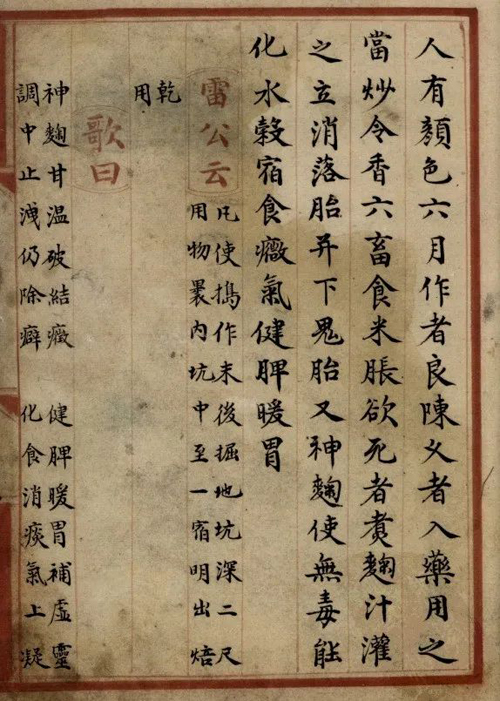 人有顏色六月作者良陳久者入藥用之
當炒令香六畜食米脹欲死者煑麴汁灌
之立消落胎并下鬼胎又神麴使無毒能
化水穀宿食癥氣健脾暖胃
雷公云
凡使擣作末後掘地坑深二尺
用物褁內坑中至一宿明出焙
乾
用
歌曰
神麴甘温破結癥 健脾暖胃補虛靈
調中止洩仍除癖 化食消痰氣上凝